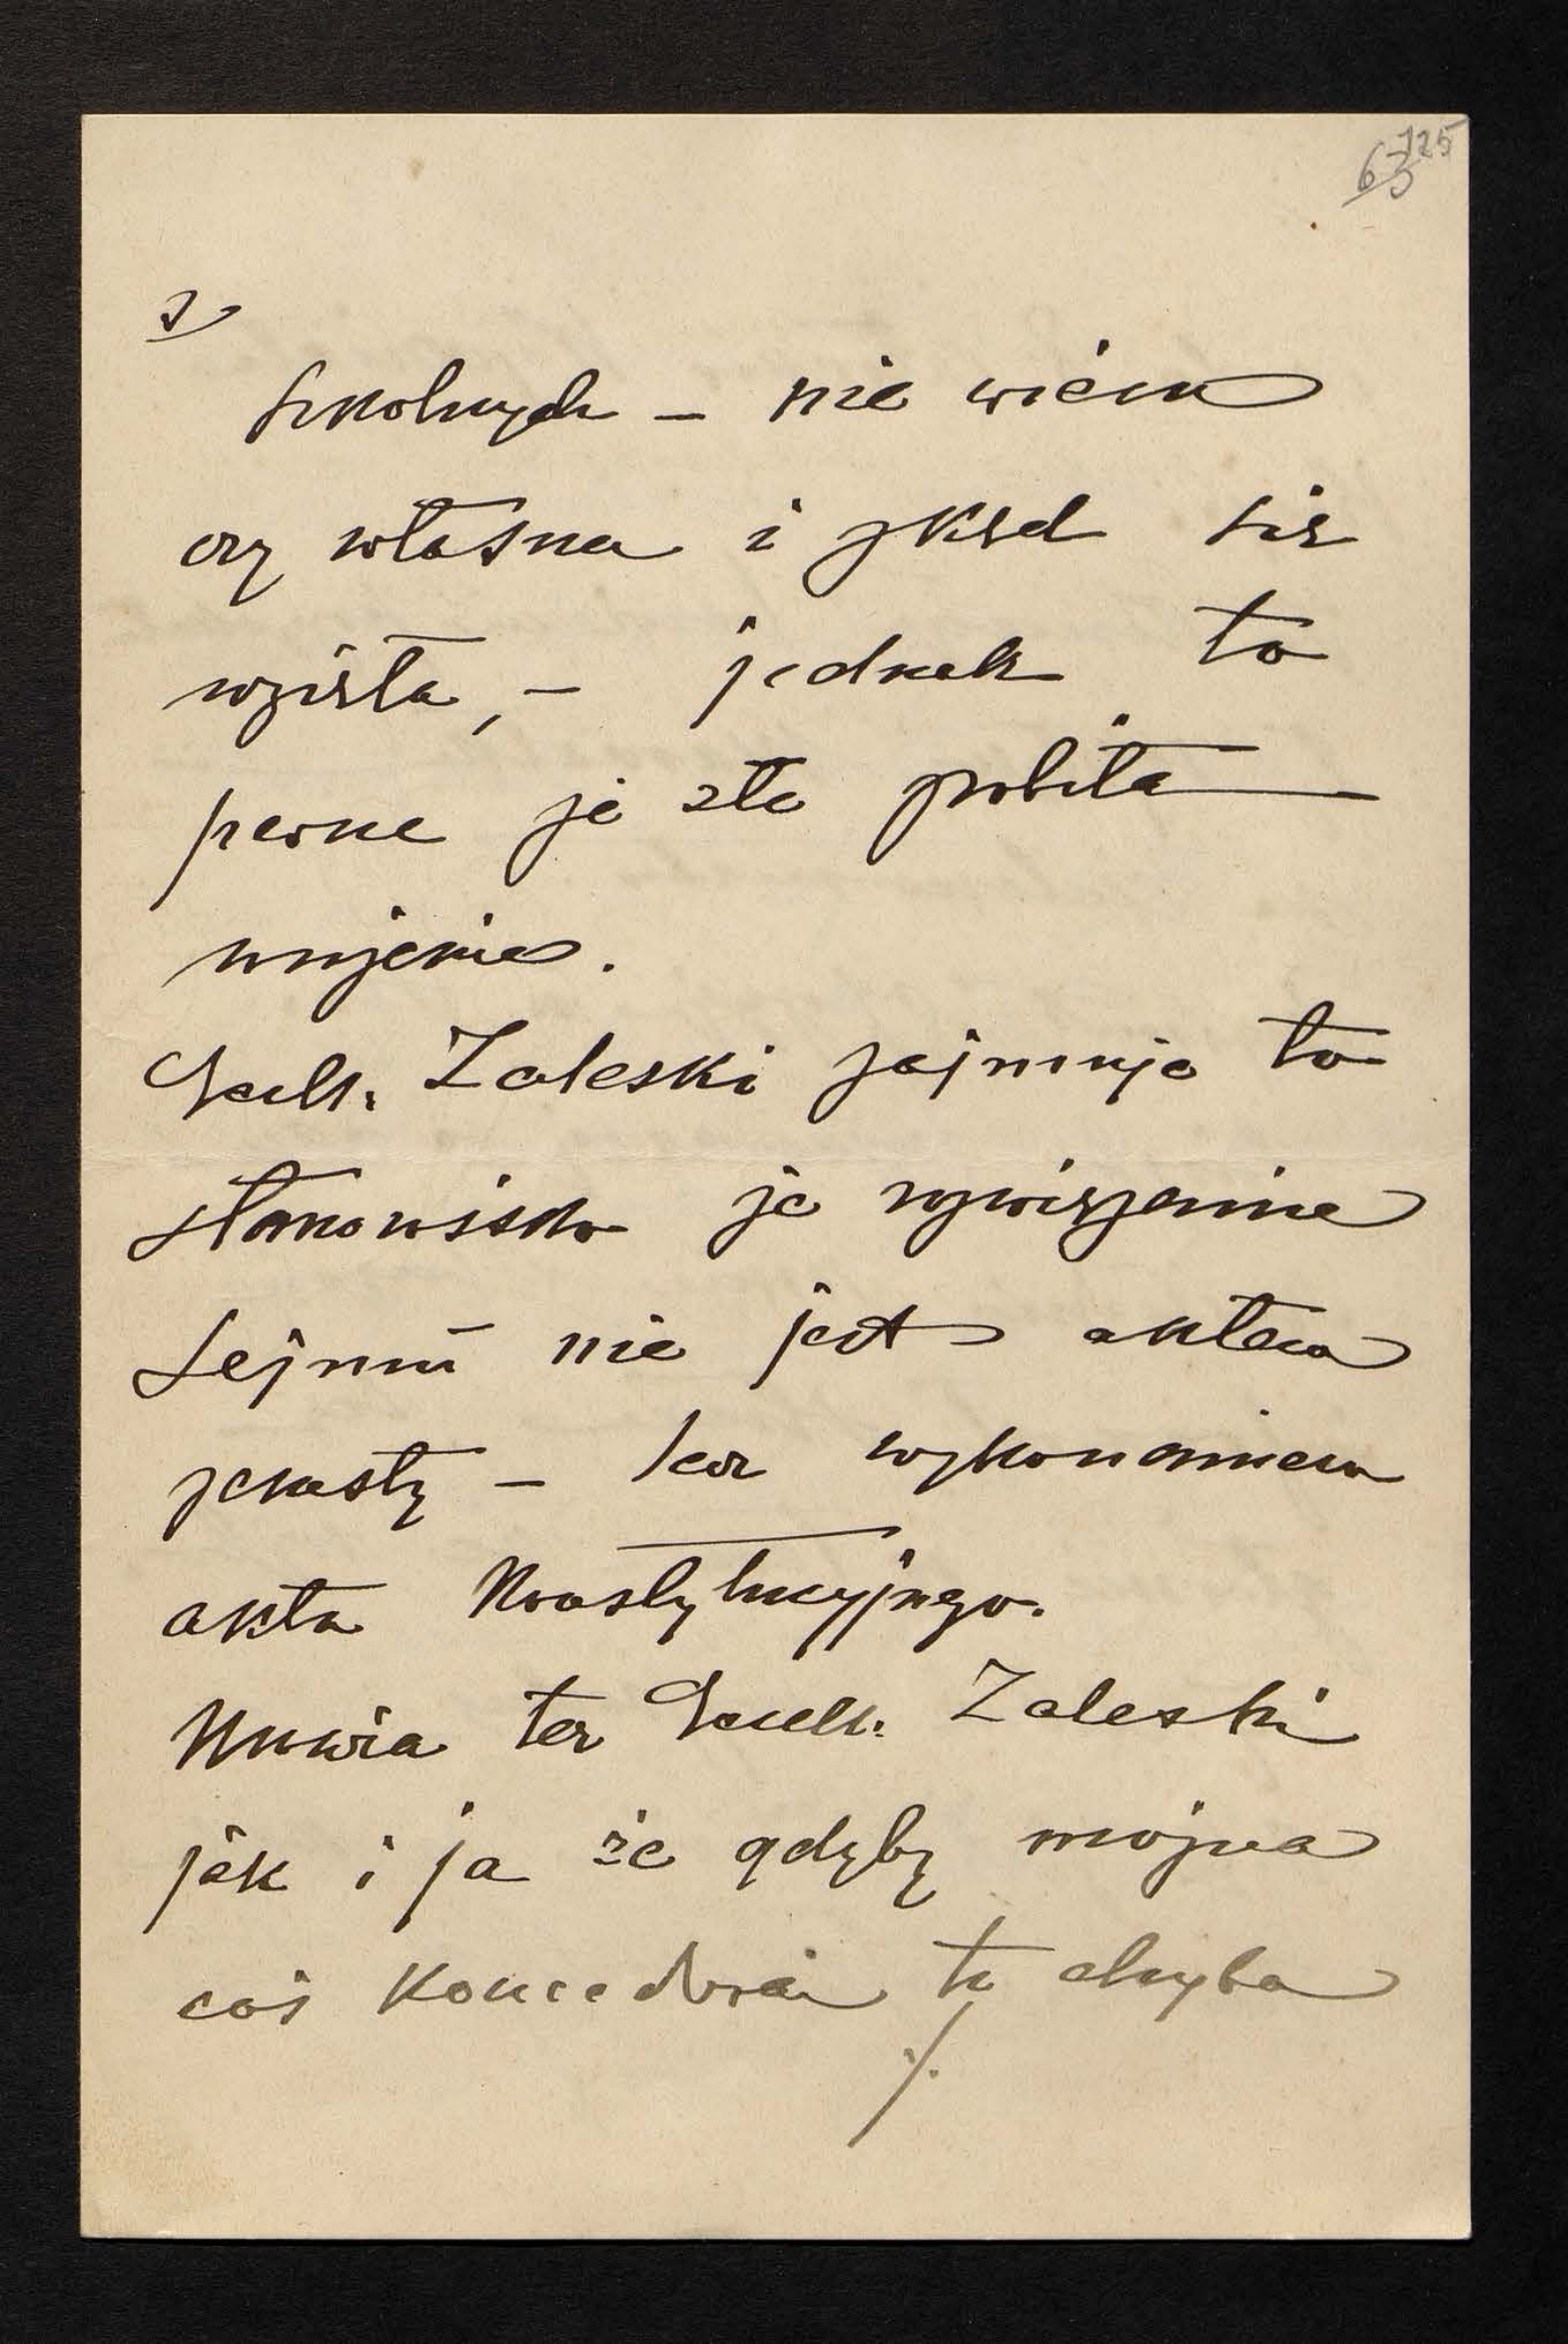 125
63
3/
szkolnych – nie wiem
czy własna i skąd się
wzięła, – jednak to
pewne że złe zrobiła
wrażenie.
Zaleski zajmuje to
stanowisko że rozwiązanie
Sejmu nie jest aktem
zemsty – lecz wykonaniem
aktu Konstytucyjnego.
Mówią też Zaleski
jak i ja że gdyby można
coś koncedować to chyba
./.